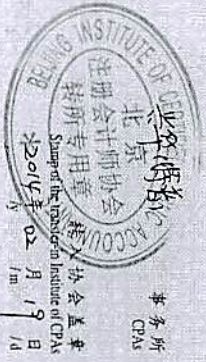 事务所
CPAs
BEIJING INSTITUTE OF CERTIFIED PUBLIC ACCOUNTANTS
北京
注册会计师协会
转所专用章
转入协会盖章
Stamp of the transfer-in Institute of CPAs
2014年02月19日
/y /m /d